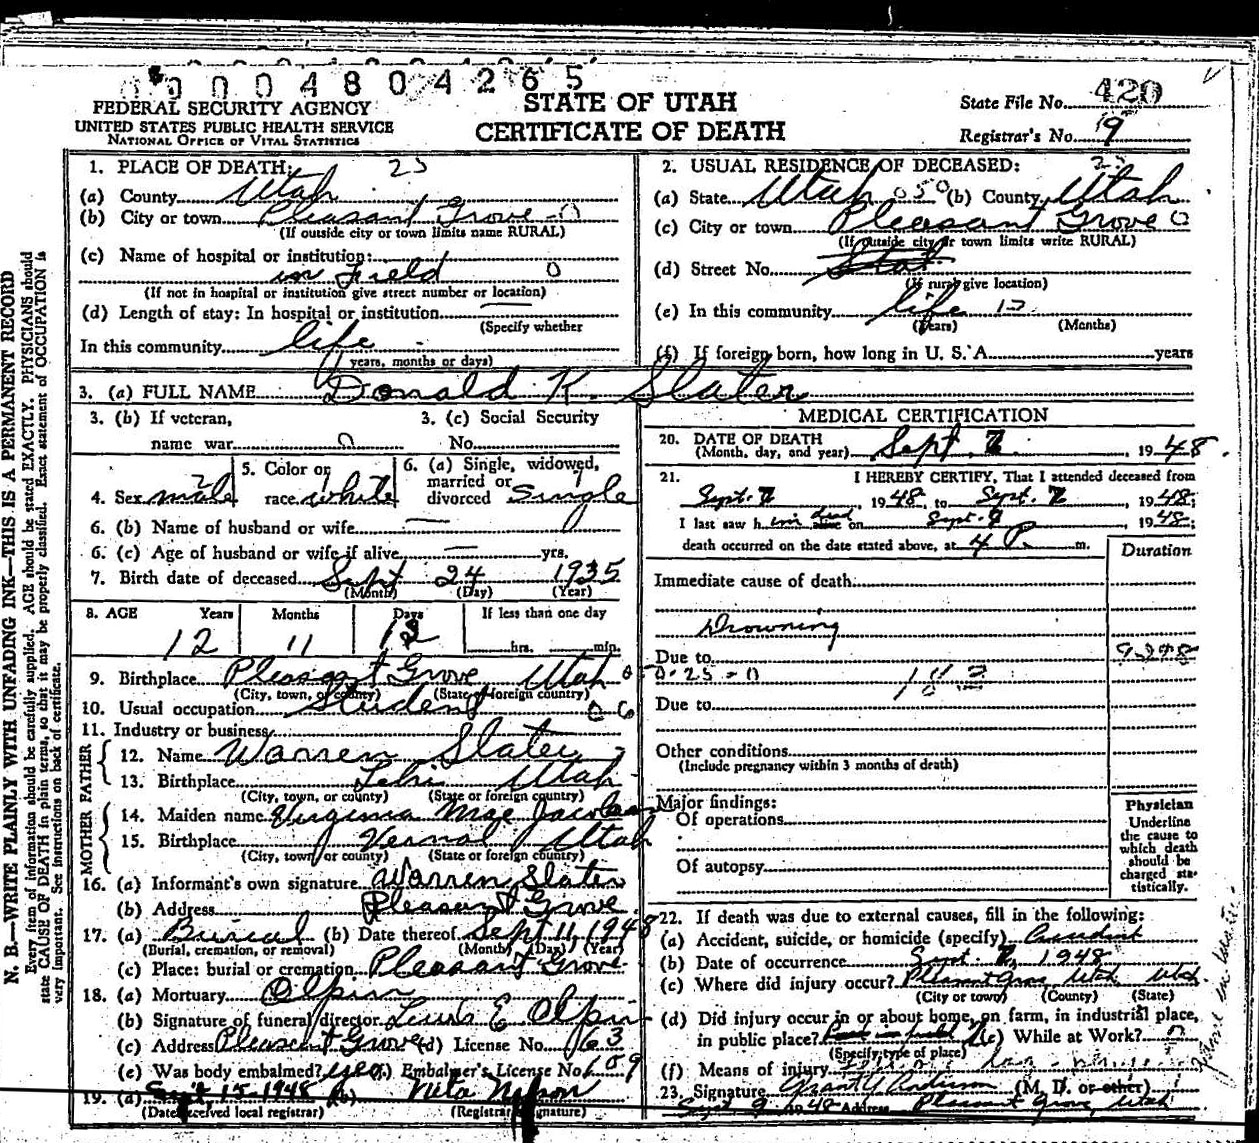 0004804265
FEDERAL SECURITY AGENCY
UNITED STATES PUBLIC HEALTH SERVICE
NATIONAL OFFICE OF VITAL STATISTICS
STATE OF UTAH
CERTIFICATE OF DEATH
State File No. 420
Registrar's No. 9
N. B.—WRITE PLAINLY WITH UNFADING INK—THIS IS A PERMANENT RECORD
Every item of information should be carefully supplied. AGE should be stated EXACTLY. PHYSICIANS should
state CAUSE OF DEATH in plain terms, so that it may be properly classified. Exact statement of OCCUPATION is
very important. See instructions on back of certificate.
1. PLACE OF DEATH:
(a) County Utah
(b) City or town Pleasant Grove - 0
(If outside city or town limits name RURAL)
(c) Name of hospital or institution:
in Field 0
(If not in hospital or institution give street number or location)
(d) Length of stay: In hospital or institution
(Specify whether
In this community life
years, months or days)
2. USUAL RESIDENCE OF DECEASED:
(a) State Utah 050 (b) County Utah
(c) City or town Pleasant Grove 0
(If outside city or town limits write RURAL)
(d) Street No.
(If rural give location)
(e) In this community life
(Years) (Months)
(f) If foreign born, how long in U. S. A. years
3. (a) FULL NAME Donald K. Slater
3. (b) If veteran,
name war 0
3. (c) Social Security
No.
4. Sex male
5. Color or
race white
6. (a) Single, widowed,
married or
divorced Single
6. (b) Name of husband or wife —
6. (c) Age of husband or wife if alive — yrs.
7. Birth date of deceased Sept 24 1935
(Month) (Day) (Year)
8. AGE Years Months Days If less than one day
12 11 hrs. min.
9. Birthplace Pleasant Grove Utah
(City, town, or county) (State or foreign country)
10. Usual occupation Student
11. Industry or business
FATHER
12. Name Warren Slater
13. Birthplace Lehi Utah
(City, town, or county) (State or foreign country)
MOTHER
14. Maiden name Virginia Mae
15. Birthplace Vernal Utah
(City, town or county) (State or foreign country)
16. (a) Informant's own signature Warren Slater
(b) Address Pleasant Grove
17. (a) Burial (b) Date thereof Sept 11 1948
(Burial, cremation, or removal) (Month) (Day) (Year)
(c) Place: burial or cremation Pleasant Grove
18. (a) Mortuary Olpin
(b) Signature of funeral director E Olpin
(c) Address Pleasant Grove (d) License No. 163
(e) Was body embalmed? yes (f.) Embalmer's License No. 109
19. (a) Sept 15-1948 (b) Neta Nelson
(Date received local registrar) (Registrar's signature)
MEDICAL CERTIFICATION
20. DATE OF DEATH
(Month, day, and year) Sept. , 1948.
21. I HEREBY CERTIFY, That I attended deceased from
Sept. , 1948, to Sept. , 1948;
I last saw him dead alive on Sept. 9, 1948;
death occurred on the date stated above, at 4 P. m.
Duration
Immediate cause of death
Drowning
Due to
Due to
Other conditions
(Include pregnancy within 3 months of death)
Major findings:
Of operations
Of autopsy
Physician
Underline
the cause to
which death
should be
charged sta-
tistically.
22. If death was due to external causes, fill in the following:
(a) Accident, suicide, or homicide (specify) Accident
(b) Date of occurrence Sept. , 1948
(c) Where did injury occur? Pleasant Grove Utah Utah
(City or town) (County) (State)
(d) Did injury occur in or about home, on farm, in industrial place,
in public place? (e) While at Work?
(Specify type of place)
(f) Means of injury
23. Signature Grant Y Anderson (M. D. or other)
Sept 9 1948 Address Pleasant Grove, Utah